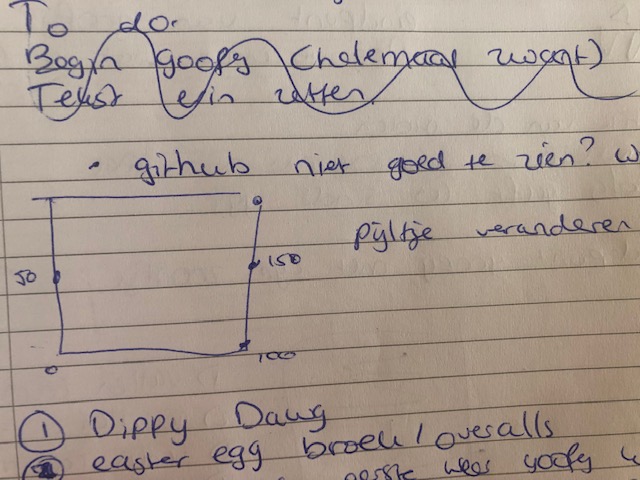 To do.
Begin goofy (helemaal zwart)
Tekst erin zetten
• github niet goed te zien? W
pijltje veranderen
50
150
0
100
① Dippy Dawg
② easter egg broek / overalls
was goofy